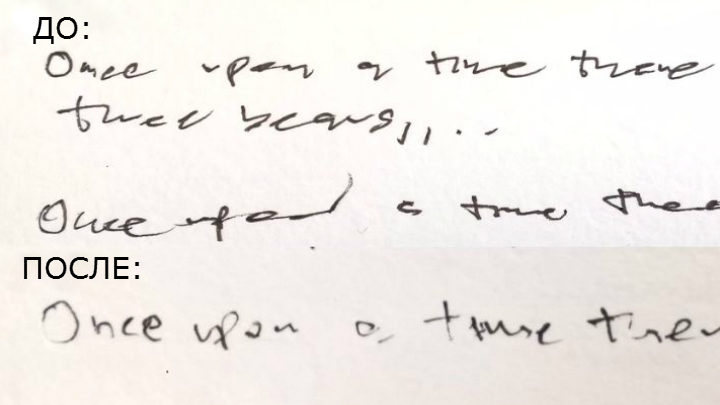 ДО:
Once upon a time there
three bears,,,..
Once upon a time the
ПОСЛЕ:
Once upon a time ther